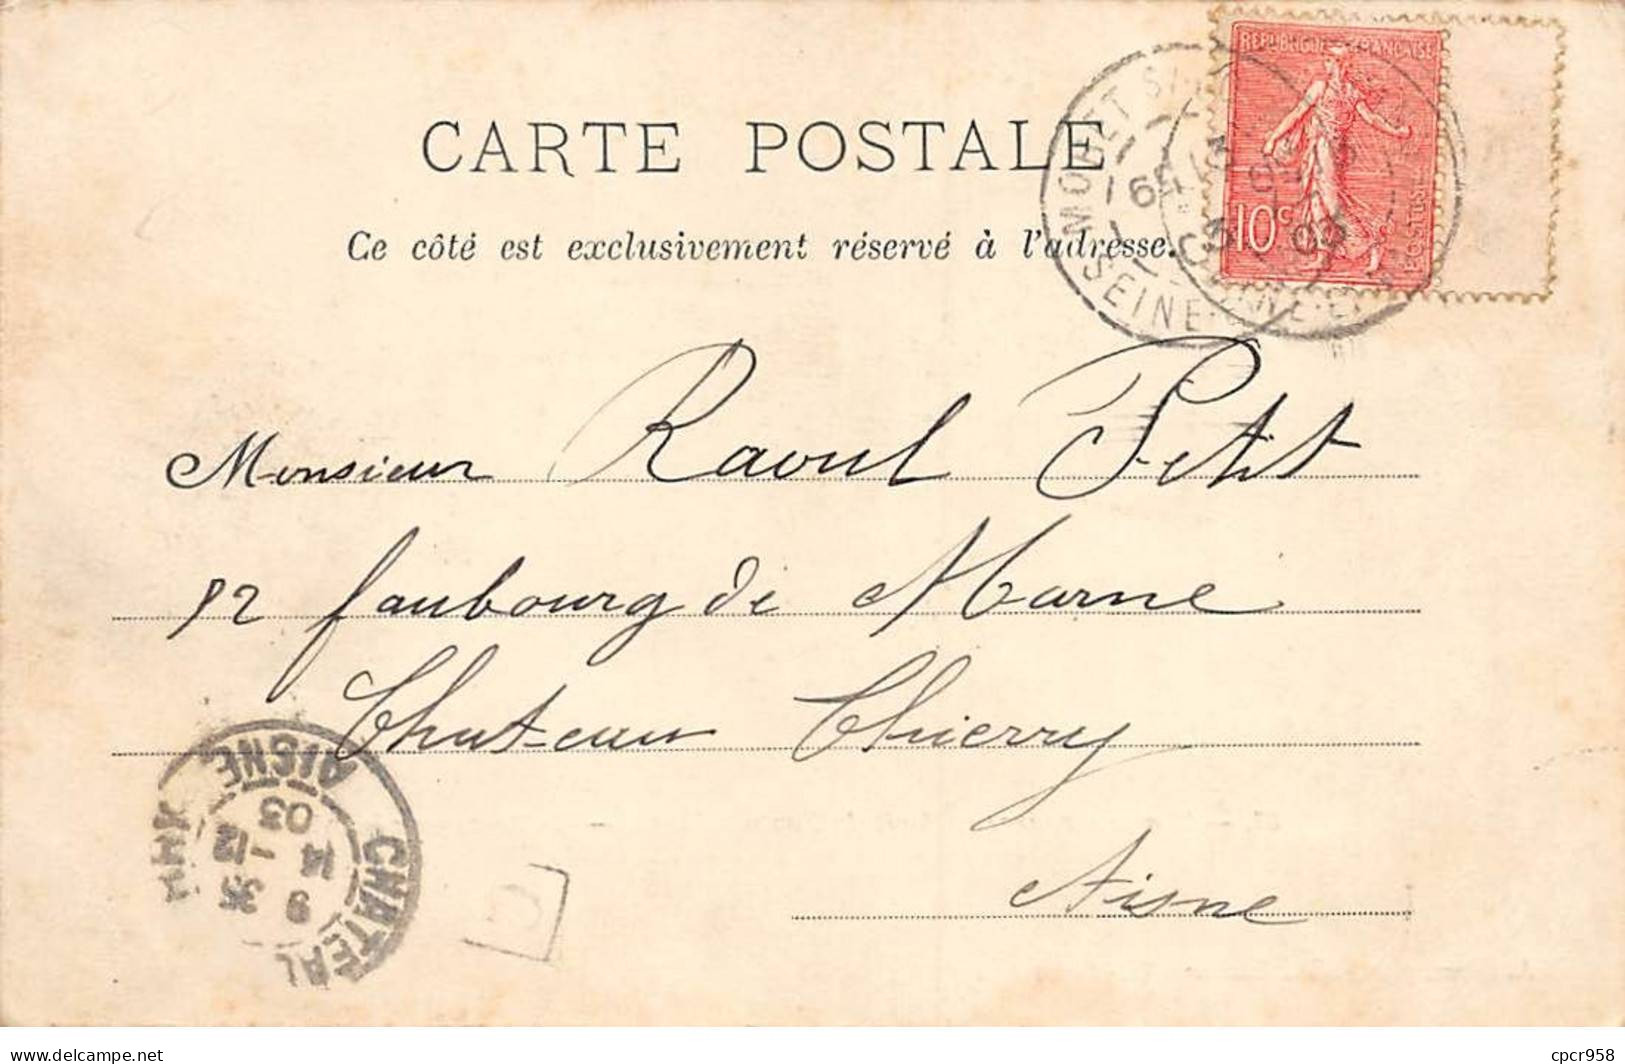 CARTE POSTALE
Ce côté est exclusivement réservé à l'adresse.
RÉPUBLIQUE FRANÇAISE
10c
POSTES
MORET S
SEINE
03
Monsieur Raoul Petit
92 faubourg de Marne
Chateau Thierry
Aisne
CHATEAU
AISNE
9
14 -12
03
cpcr958